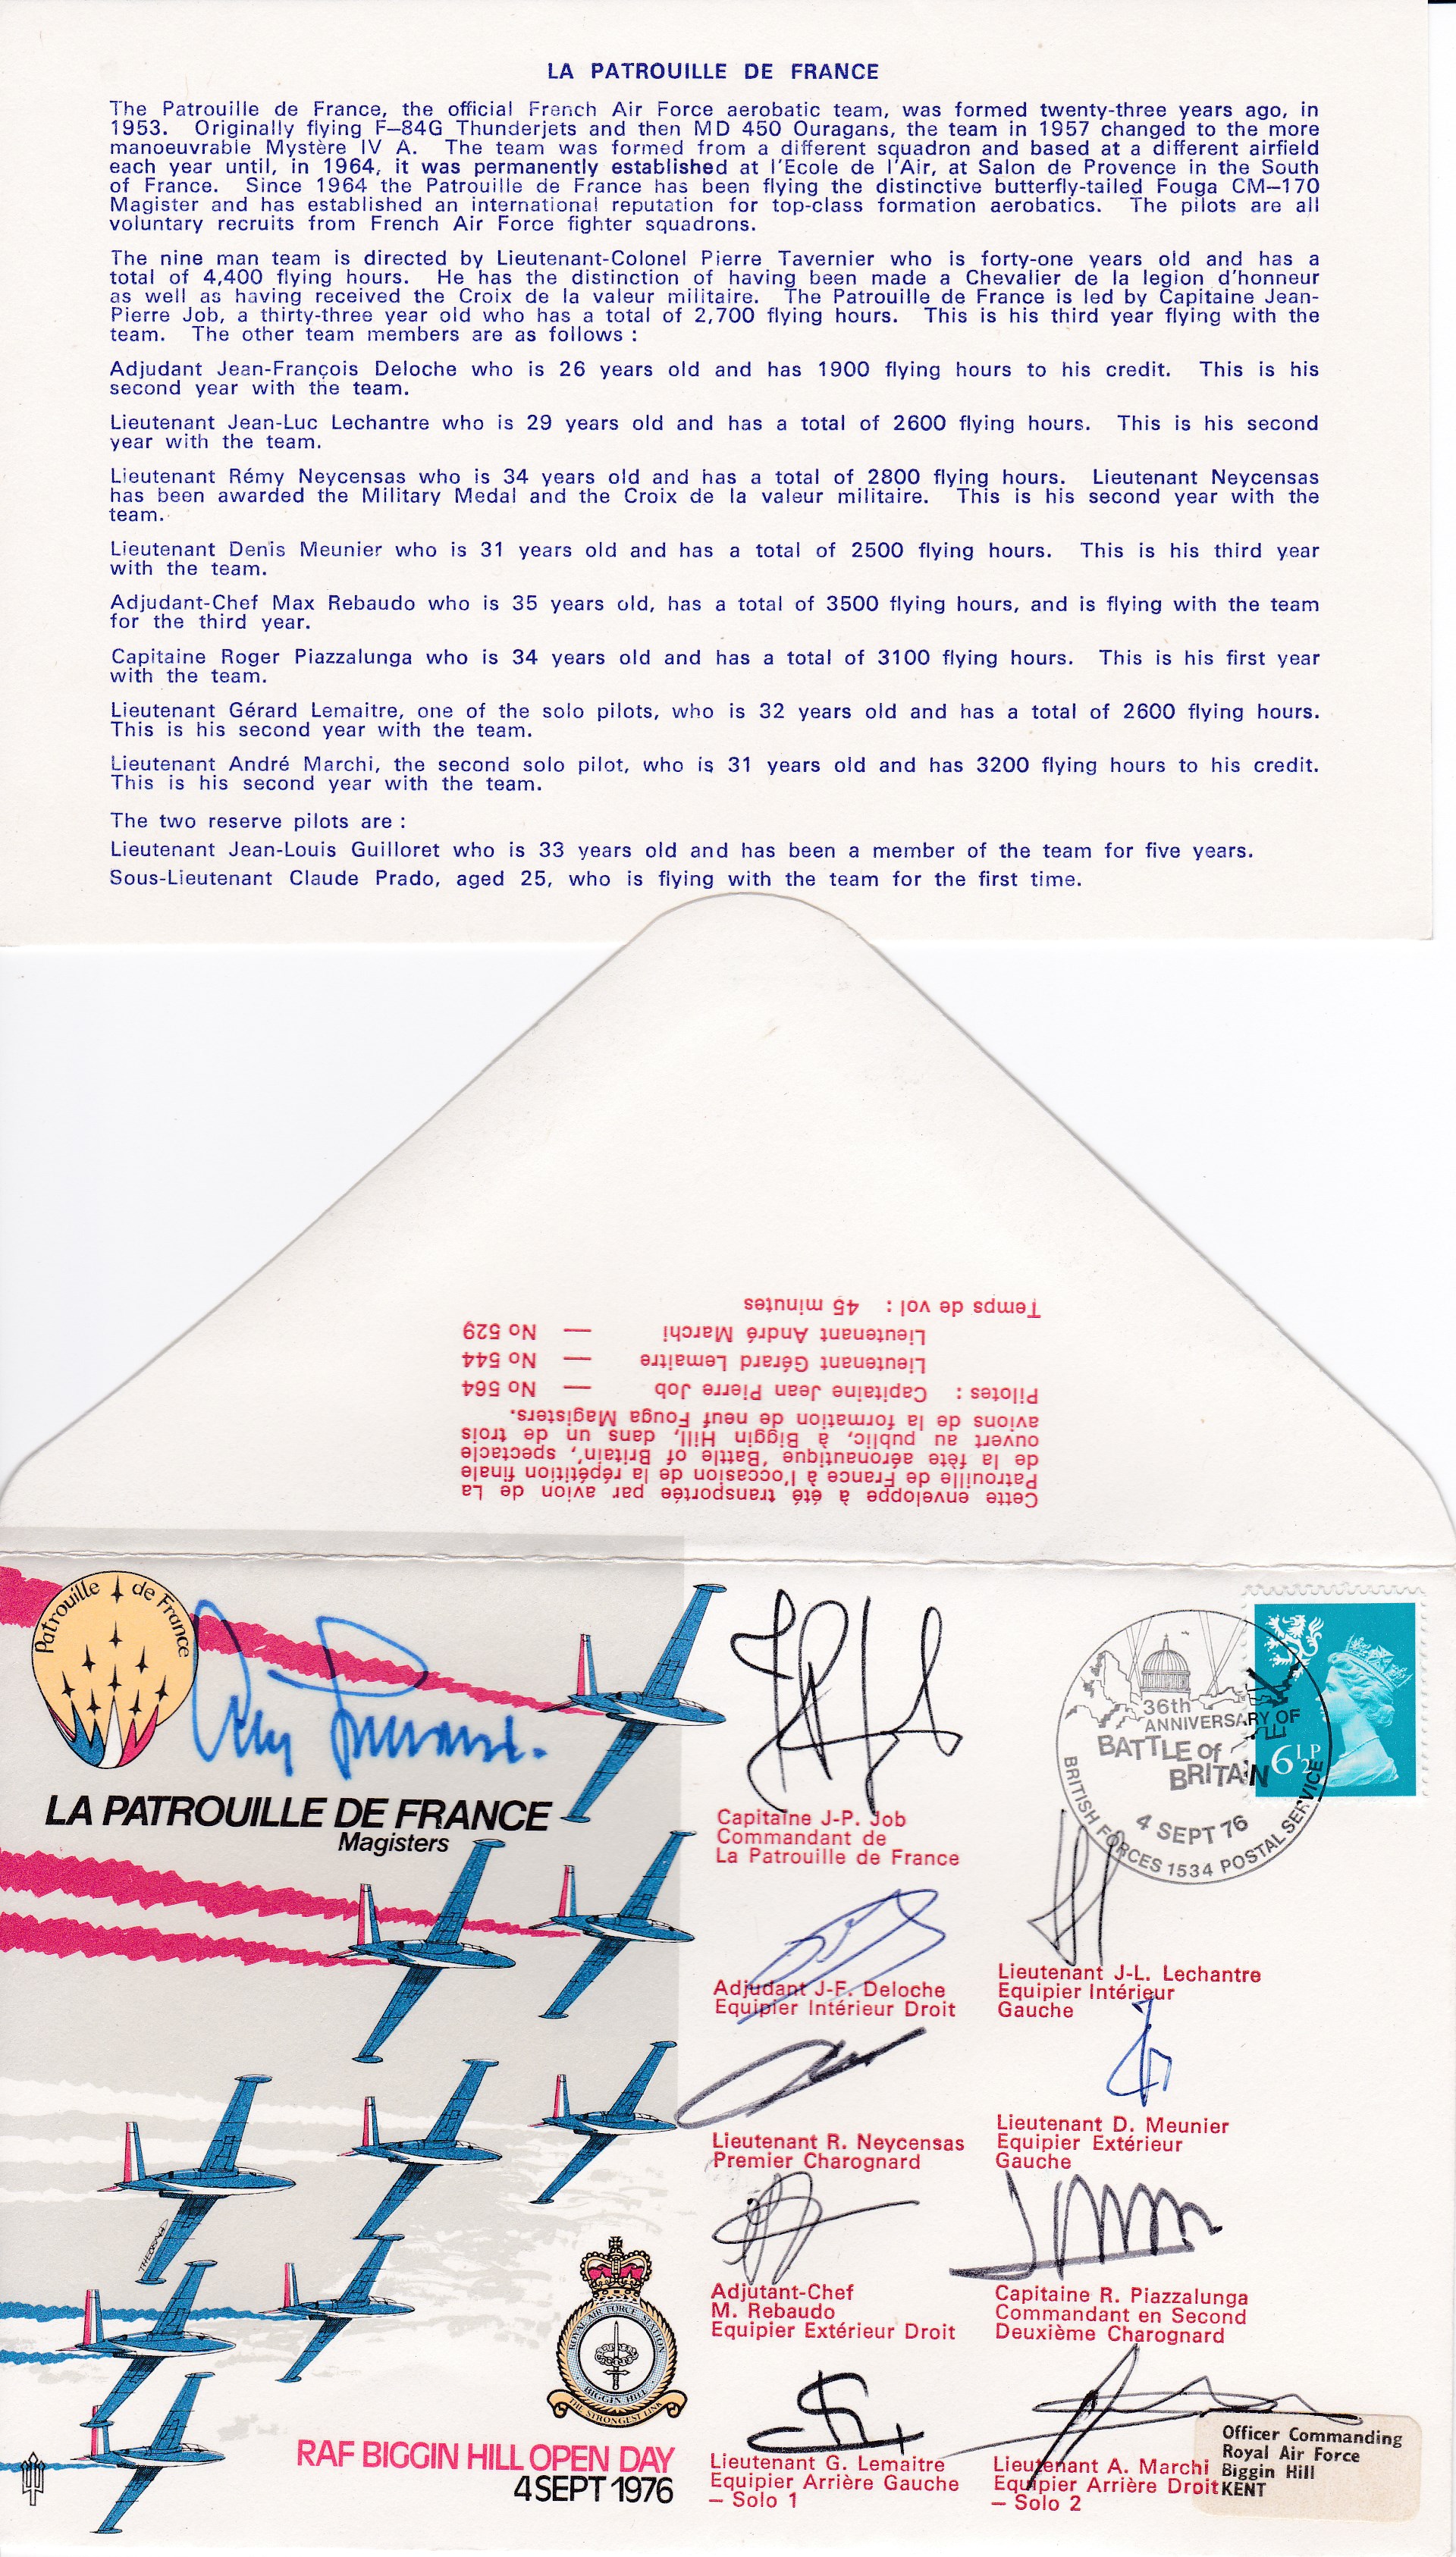 LA PATROUILLE DE FRANCE
The Patrouille de France, the official French Air Force aerobatic team, was formed twenty-three years ago, in
1953. Originally flying F—84G Thunderjets and then MD 450 Ouragans, the team in 1957 changed to the more
manoeuvrable Mystère IV A. The team was formed from a different squadron and based at a different airfield
each year until, in 1964, it was permanently established at l'Ecole de l'Air, at Salon de Provence in the South
of France. Since 1964 the Patrouille de France has been flying the distinctive butterfly-tailed Fouga CM—170
Magister and has established an international reputation for top-class formation aerobatics. The pilots are all
voluntary recruits from French Air Force fighter squadrons.
The nine man team is directed by Lieutenant-Colonel Pierre Tavernier who is forty-one years old and has a
total of 4,400 flying hours. He has the distinction of having been made a Chevalier de la legion d'honneur
as well as having received the Croix de la valeur militaire. The Patrouille de France is led by Capitaine Jean-
Pierre Job, a thirty-three year old who has a total of 2,700 flying hours. This is his third year flying with the
team. The other team members are as follows :
Adjudant Jean-François Deloche who is 26 years old and has 1900 flying hours to his credit. This is his
second year with the team.
Lieutenant Jean-Luc Lechantre who is 29 years old and has a total of 2600 flying hours. This is his second
year with the team.
Lieutenant Rémy Neycensas who is 34 years old and has a total of 2800 flying hours. Lieutenant Neycensas
has been awarded the Military Medal and the Croix de la valeur militaire. This is his second year with the
team.
Lieutenant Denis Meunier who is 31 years old and has a total of 2500 flying hours. This is his third year
with the team.
Adjudant-Chef Max Rebaudo who is 35 years old, has a total of 3500 flying hours, and is flying with the team
for the third year.
Capitaine Roger Piazzalunga who is 34 years old and has a total of 3100 flying hours. This is his first year
with the team.
Lieutenant Gérard Lemaitre, one of the solo pilots, who is 32 years old and has a total of 2600 flying hours.
This is his second year with the team.
Lieutenant André Marchi, the second solo pilot, who is 31 years old and has 3200 flying hours to his credit.
This is his second year with the team.
The two reserve pilots are :
Lieutenant Jean-Louis Guilloret who is 33 years old and has been a member of the team for five years.
Sous-Lieutenant Claude Prado, aged 25, who is flying with the team for the first time.
Cette enveloppe à été transportée par avion de La
Patrouille de France à l'occasion de la répétition finale
de la fête aéronautique 'Battle of Britain', spectacle
ouvert au public, à Biggin Hill, dans un de trois
avions de la formation de neuf Fouga Magisters.
Pilotes : Capitaine Jean Pierre Job — No 564
Lieutenant Gérard Lemaitre — No 544
Lieutenant André Marchi — No 529
Temps de vol : 45 minutes
Patrouille de France
LA PATROUILLE DE FRANCE
Magisters
36th
ANNIVERSARY OF
BATTLE of
BRITAIN
4 SEPT 76
BRITISH FORCES 1534 POSTAL SERVICE
6½P
Capitaine J-P. Job
Commandant de
La Patrouille de France
Adjudant J-F. Deloche
Equipier Intérieur Droit
Lieutenant J-L. Lechantre
Equipier Intérieur
Gauche
Lieutenant R. Neycensas
Premier Charognard
Lieutenant D. Meunier
Equipier Extérieur
Gauche
Adjutant-Chef
M. Rebaudo
Equipier Extérieur Droit
Capitaine R. Piazzalunga
Commandant en Second
Deuxième Charognard
Lieutenant G. Lemaitre
Equipier Arrière Gauche
— Solo 1
Lieutenant A. Marchi
Equipier Arrière Droit
— Solo 2
Officer Commanding
Royal Air Force
Biggin Hill
KENT
ROYAL AIR FORCE STATION
BIGGIN HILL
THE STRONGEST LINK
RAF BIGGIN HILL OPEN DAY
4 SEPT 1976